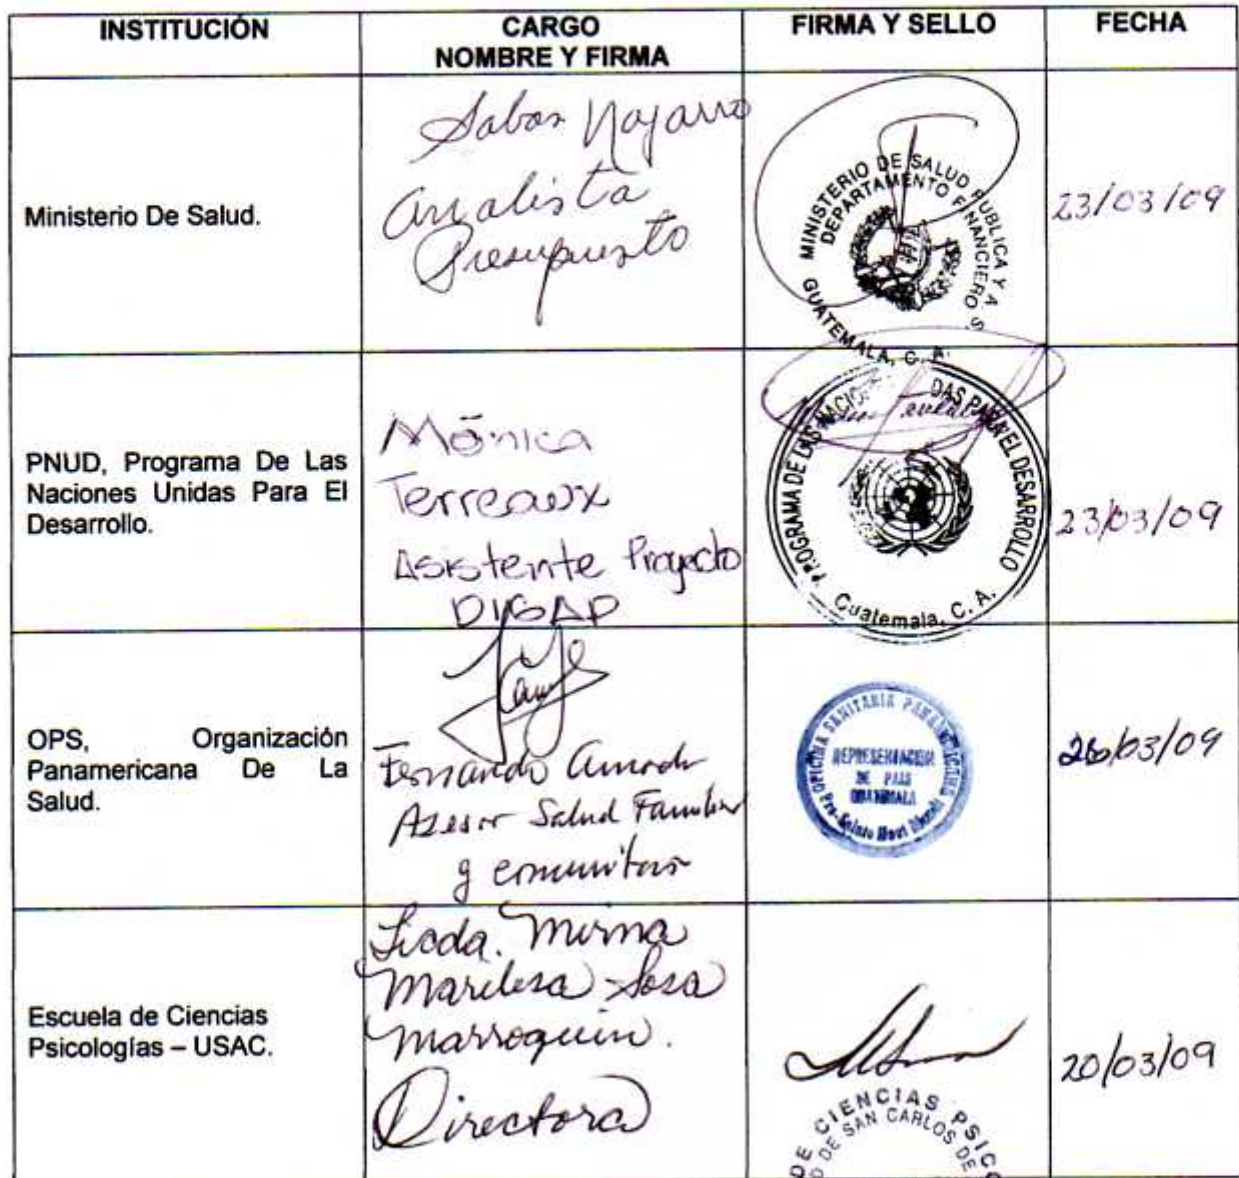 INSTITUCIÓN
CARGO
NOMBRE Y FIRMA
FIRMA Y SELLO
FECHA
Ministerio De Salud.
Analista
Presupuesto
MINISTERIO DE SALUD PUBLICA Y A S
DEPARTAMENTO FINANCIERO
GUATEMALA, C. A.
23/03/09
PNUD, Programa De Las
Naciones Unidas Para El
Desarrollo.
Mónica
Terreaux
Asistente Proyecto
DIGAP
PROGRAMA DE LAS NACIO DAS PARA EL DESARROLLO
Guatemala, C. A.
23/03/09
OPS, Organización
Panamericana De La
Salud.
Fernando Amado
Asesor Salud Familiar
y comunitar
OFICINA SANITARIA PANAMERICANA
REPRESENTACION
DE PAIS
GUATEMALA
/03/09
Escuela de Ciencias
Psicologías – USAC.
Licda. Mirna
Marilisa Sosa
Marroquin.
Directora
DE CIENCIAS PSICO
D DE SAN CARLOS DE
20/03/09